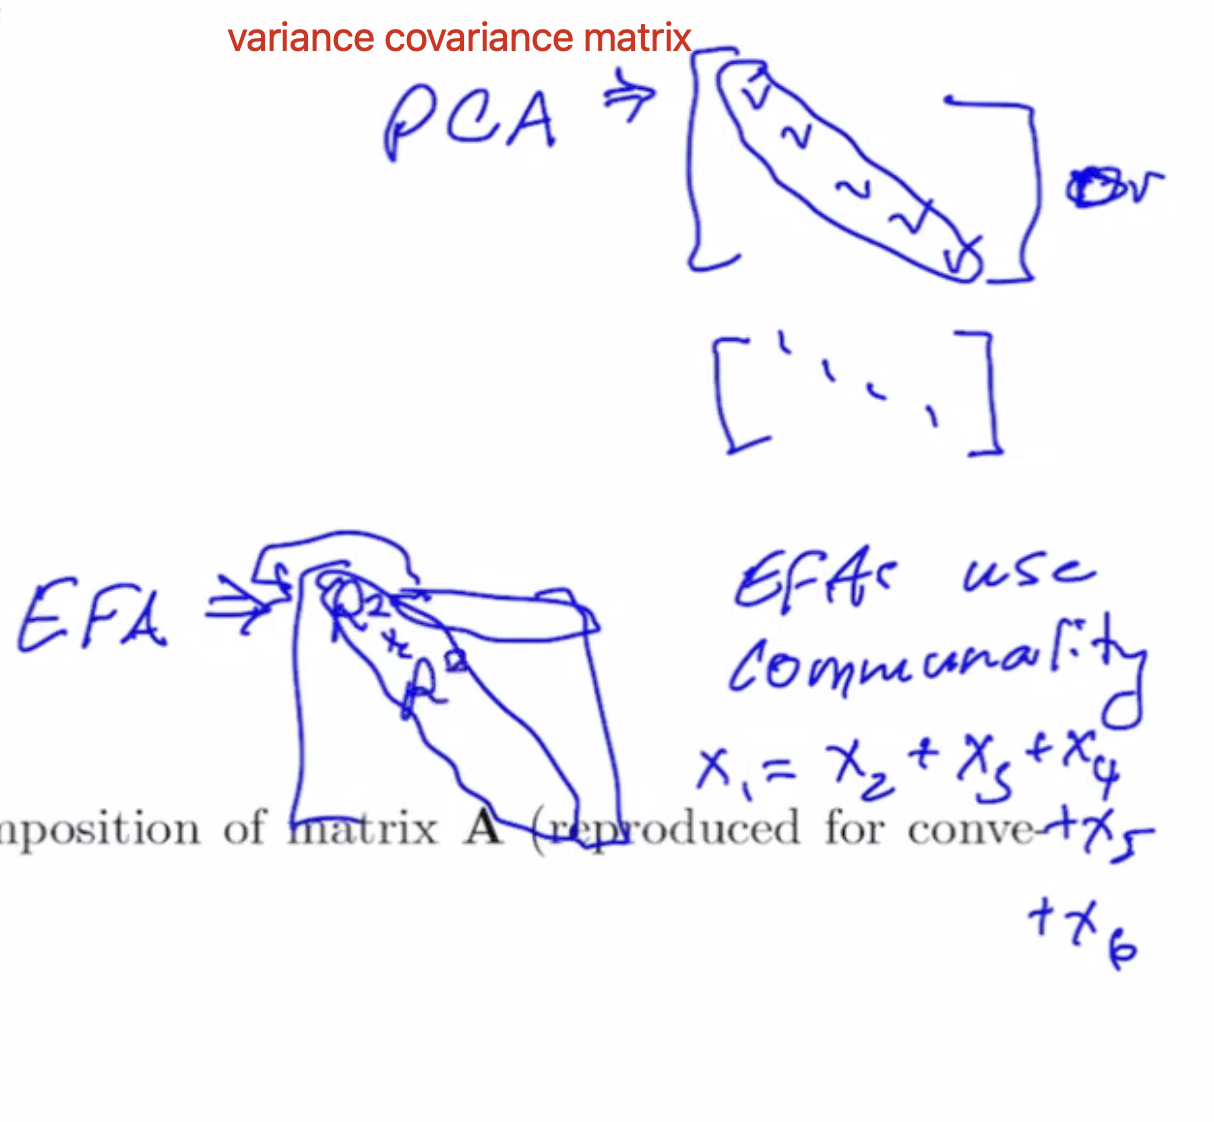 variance covariance matrix
PCA ⇒ [ v v v v v ] or
[ ⋱ ]
EFA ⇒ R² R²
EFAs use
communality
x₁ = x₂ + x₃ + x₄
+ x₅
+ x₆
mposition of matrix A (reproduced for conve-